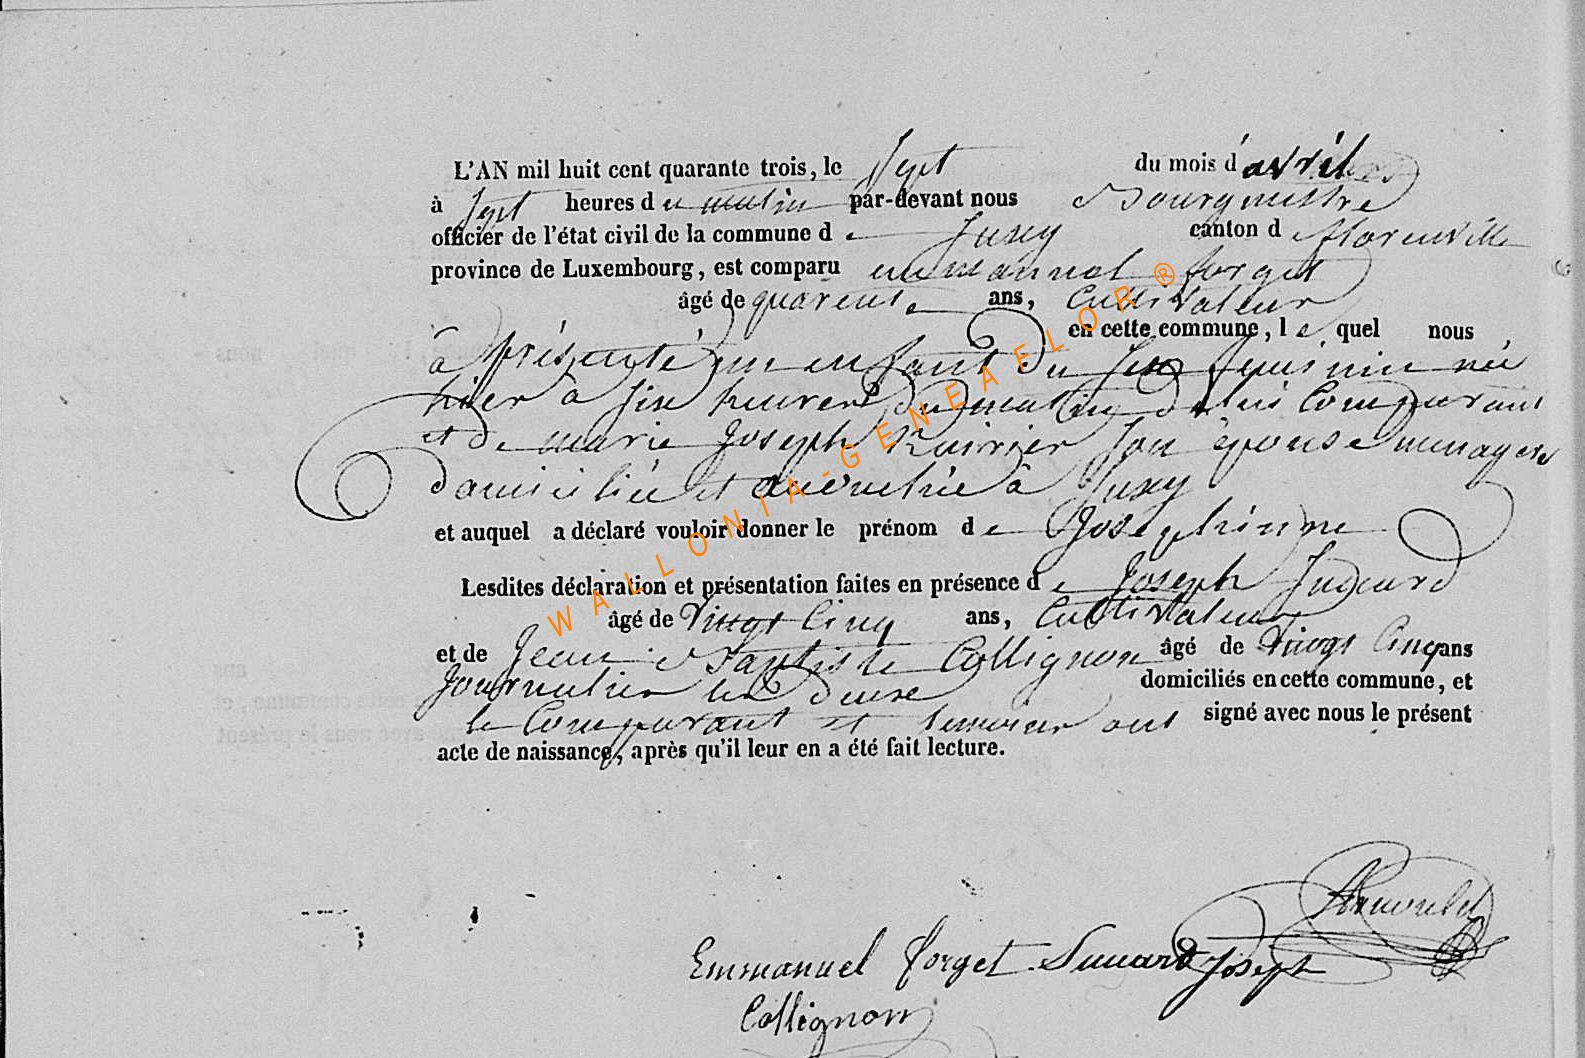 L'AN mil huit cent quarante trois, le Sept du mois d'avril
à Sept heures d u matin par-devant nous Bourgmestre
officier de l'état civil de la commune d e Jusey canton d e florenville
province de Luxembourg, est comparu emmannuel forget
âgé de quarente ans, Cultivateur
en cette commune, l e quel nous
à présenté un enfant du sexe feminin née
hier à six heures du matin de lui Comparant
et de marie Joseph son épouse menagere
domiciliée et à Jusey
et auquel a déclaré vouloir donner le prénom d e Josephinne
Lesdites déclaration et présentation faites en présence d e Joseph
âgé de Vingt Cinq ans, Cultivateur
et de Jean Baptiste Collignon âgé de Vingt Cinq ans
Journalier les deux domiciliés en cette commune, et
le Comparant et temoins ont signé avec nous le présent
acte de naissance, après qu'il leur en a été fait lecture.
Emmanuel forget Joseph
Collignon
WALLONIA-GENEAFLOR®